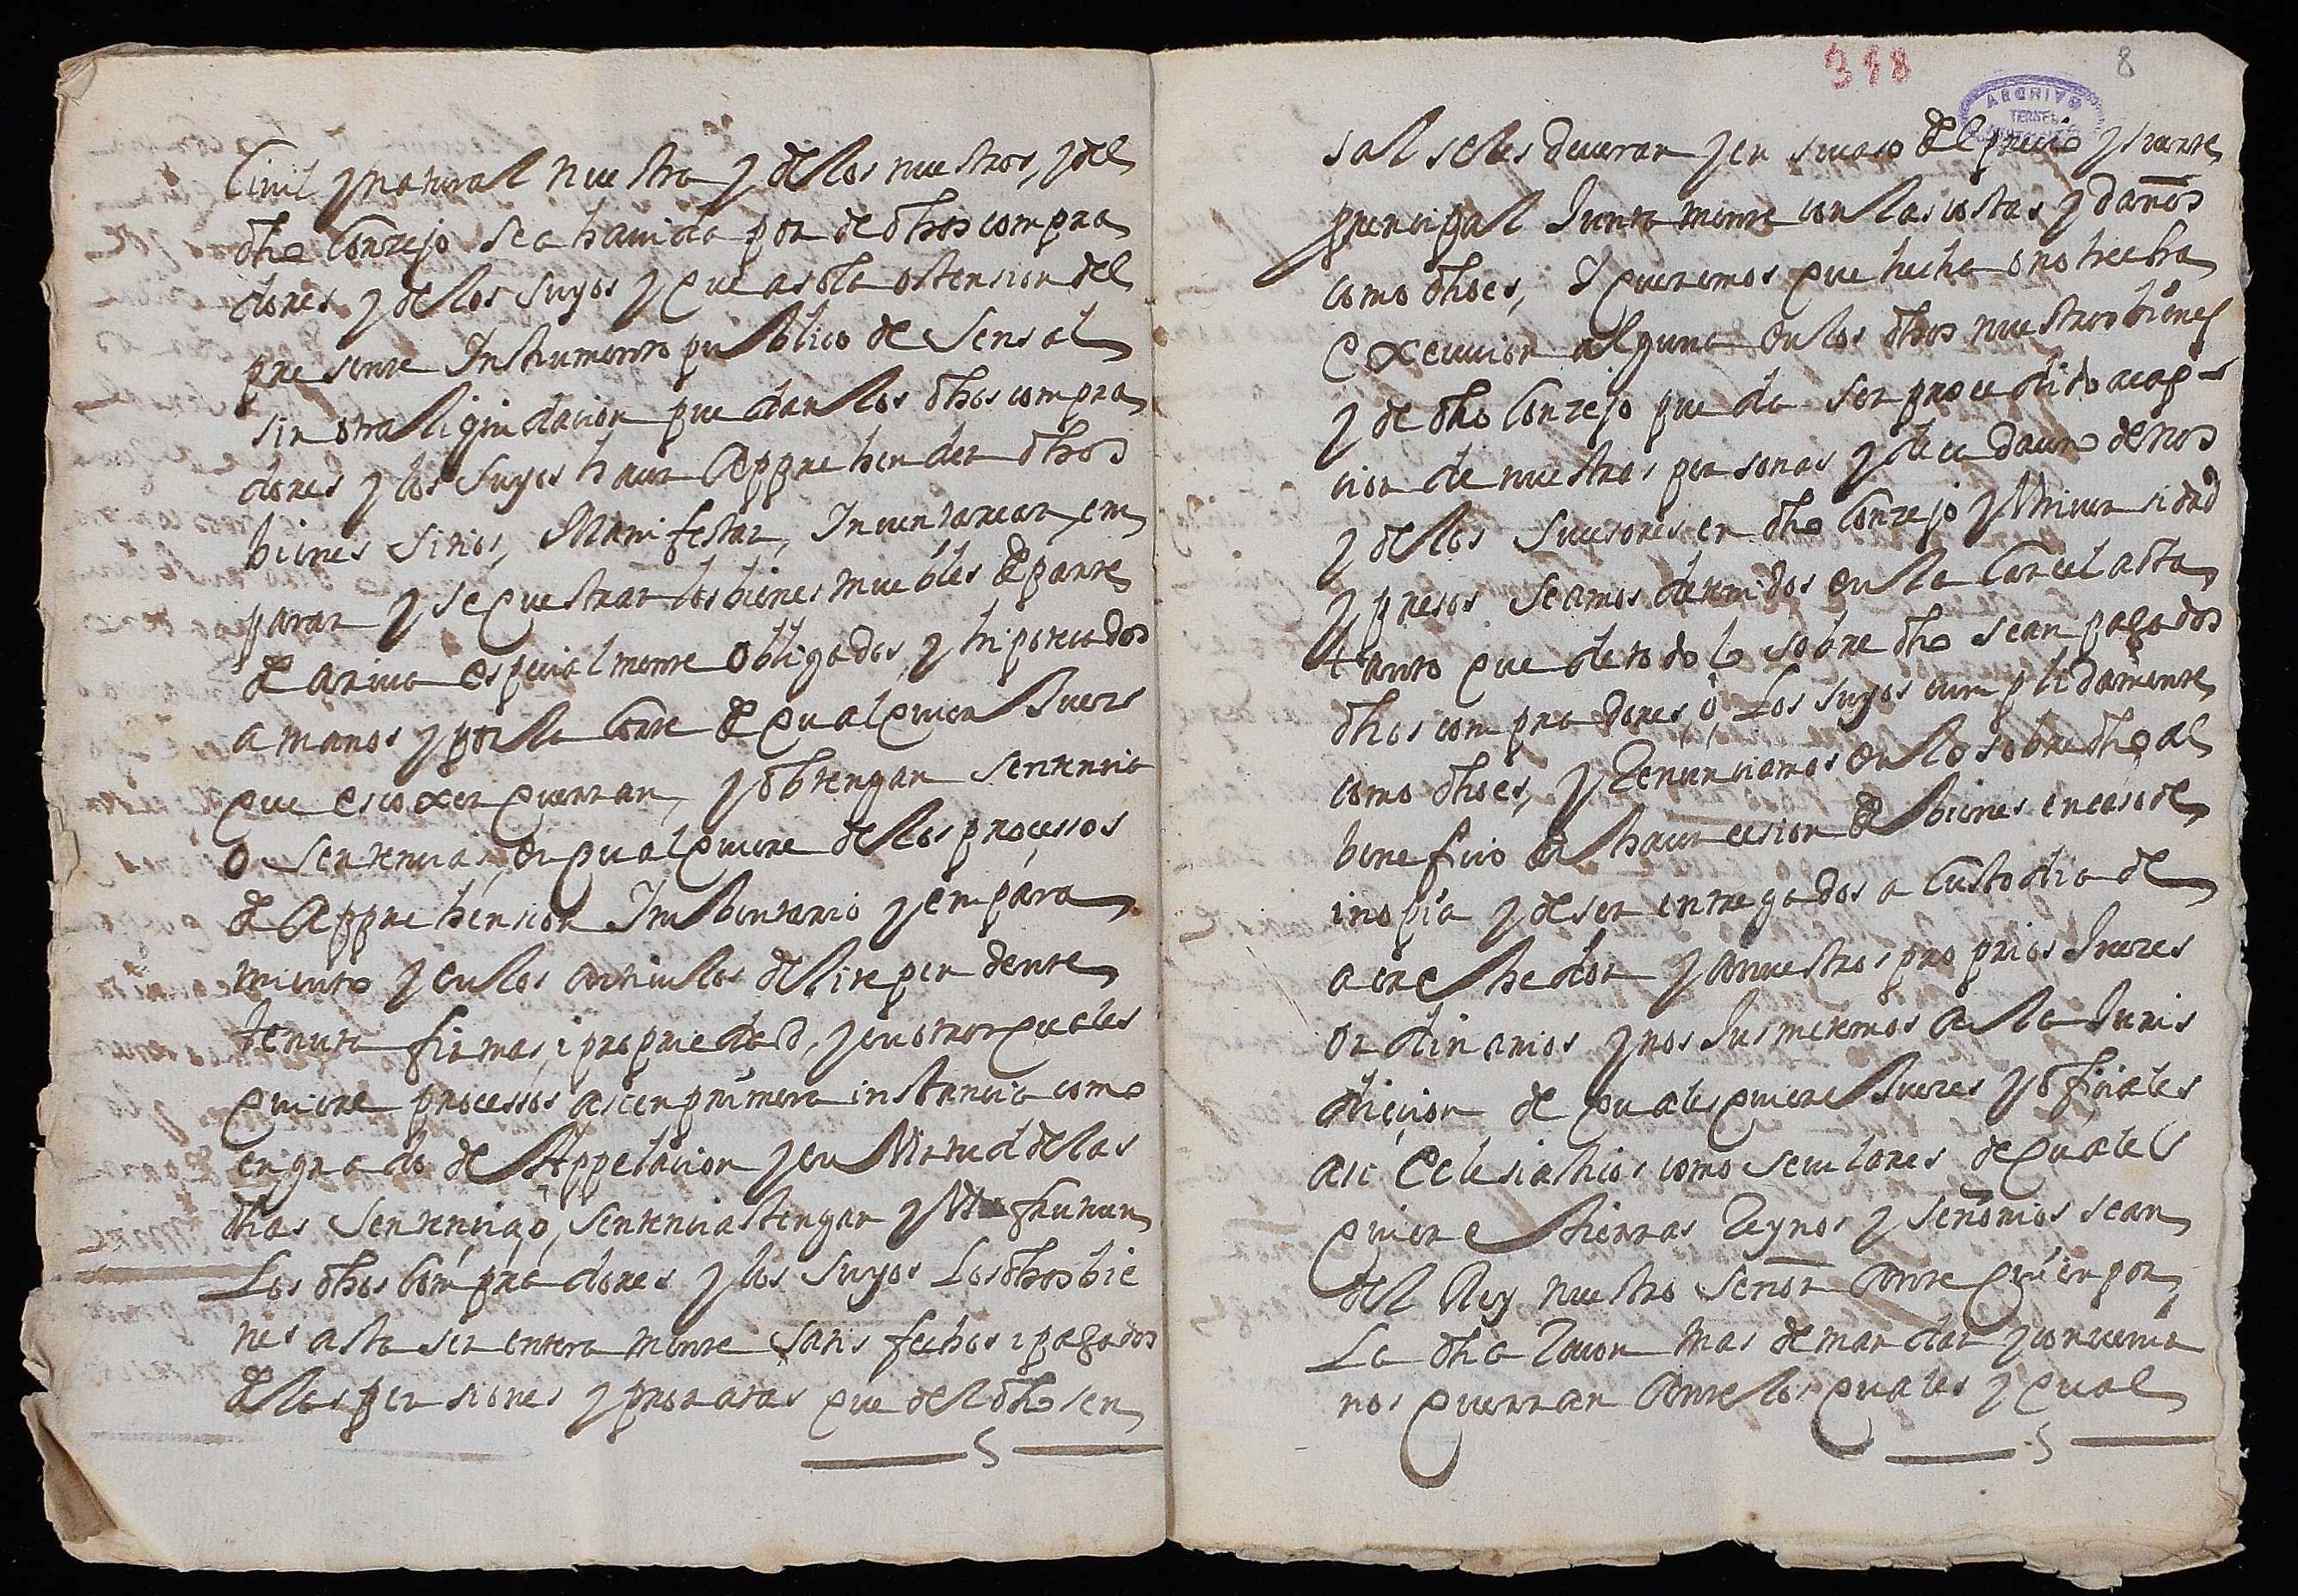 Civil y natural nuestra y de los nuestros, y del
dho Conzejo sea havida por de dhos compra
dores y de los suyos y que a sola ostension del
presente Instrumento publico de Sensal
sin otra liquidacion puedan los dhos compra
dores y los suyos hacer Apprehender dhos
bienes sitios, Manifestar, Inventarear em
parar y sequestrar los bienes muebles de parte
de ariva especialmente obligados, y hipotecados
a manos y por la Corte de qualquier Juez
que escoxer querran, y obtengan sentencia
o sentencias, en qualquiere de los processos
de Apprehension Inbentario y empara
miento y en los articulos de lite pendente
tenuta firmas, i propriedad, y en otros quales
quiere processos asi en primera instancia como
en grado de Appelacion y en Virtud de las
dhas sentencia, o, sentencias tengan y fructuen
Los dhos Compradores y los suyos Los dhos bie
nes asta ser enteramente satisfechos i pagados
de las pensiones y proratas que del dho sen
318
8
ARCHIVO
TERUEL
sal seles deveran y en su caso del precio y suerte
principal Juntamente con las costas, y daños
como dho es, Y queremos que hecha o no hecha
execucion alguna en los dhos nuestros bienes
y de dho Conzejo pueda ser procedido a cap
cion de nuestras personas y de cadauno de nos
y de los sucesores en dho Conzejo y Universidad
y presos seamos detenidos en la Carcel asta
tanto que de todo lo sobre dho sean pagados
dhos compradores, o, Los suyos cumplidamente
como dho es, y Renunciamos en lo sobredho al
beneficio de hacer cesion de bienes en caso de
inopia y de ser entregados a Custodia de
acrehedor y a nuestros proprios Jueces
ordinarios y nos Jusmetemos a la Juris
diccion de qualesquiere Jueces y oficiales
asi Eclesiasticos como seculares de quales
quiere tierras Reynos y señorios sean
del Rey nuestro señor ante quien por
La dha Racon mas demandar y convenir
nos querran Ante los quales y qual